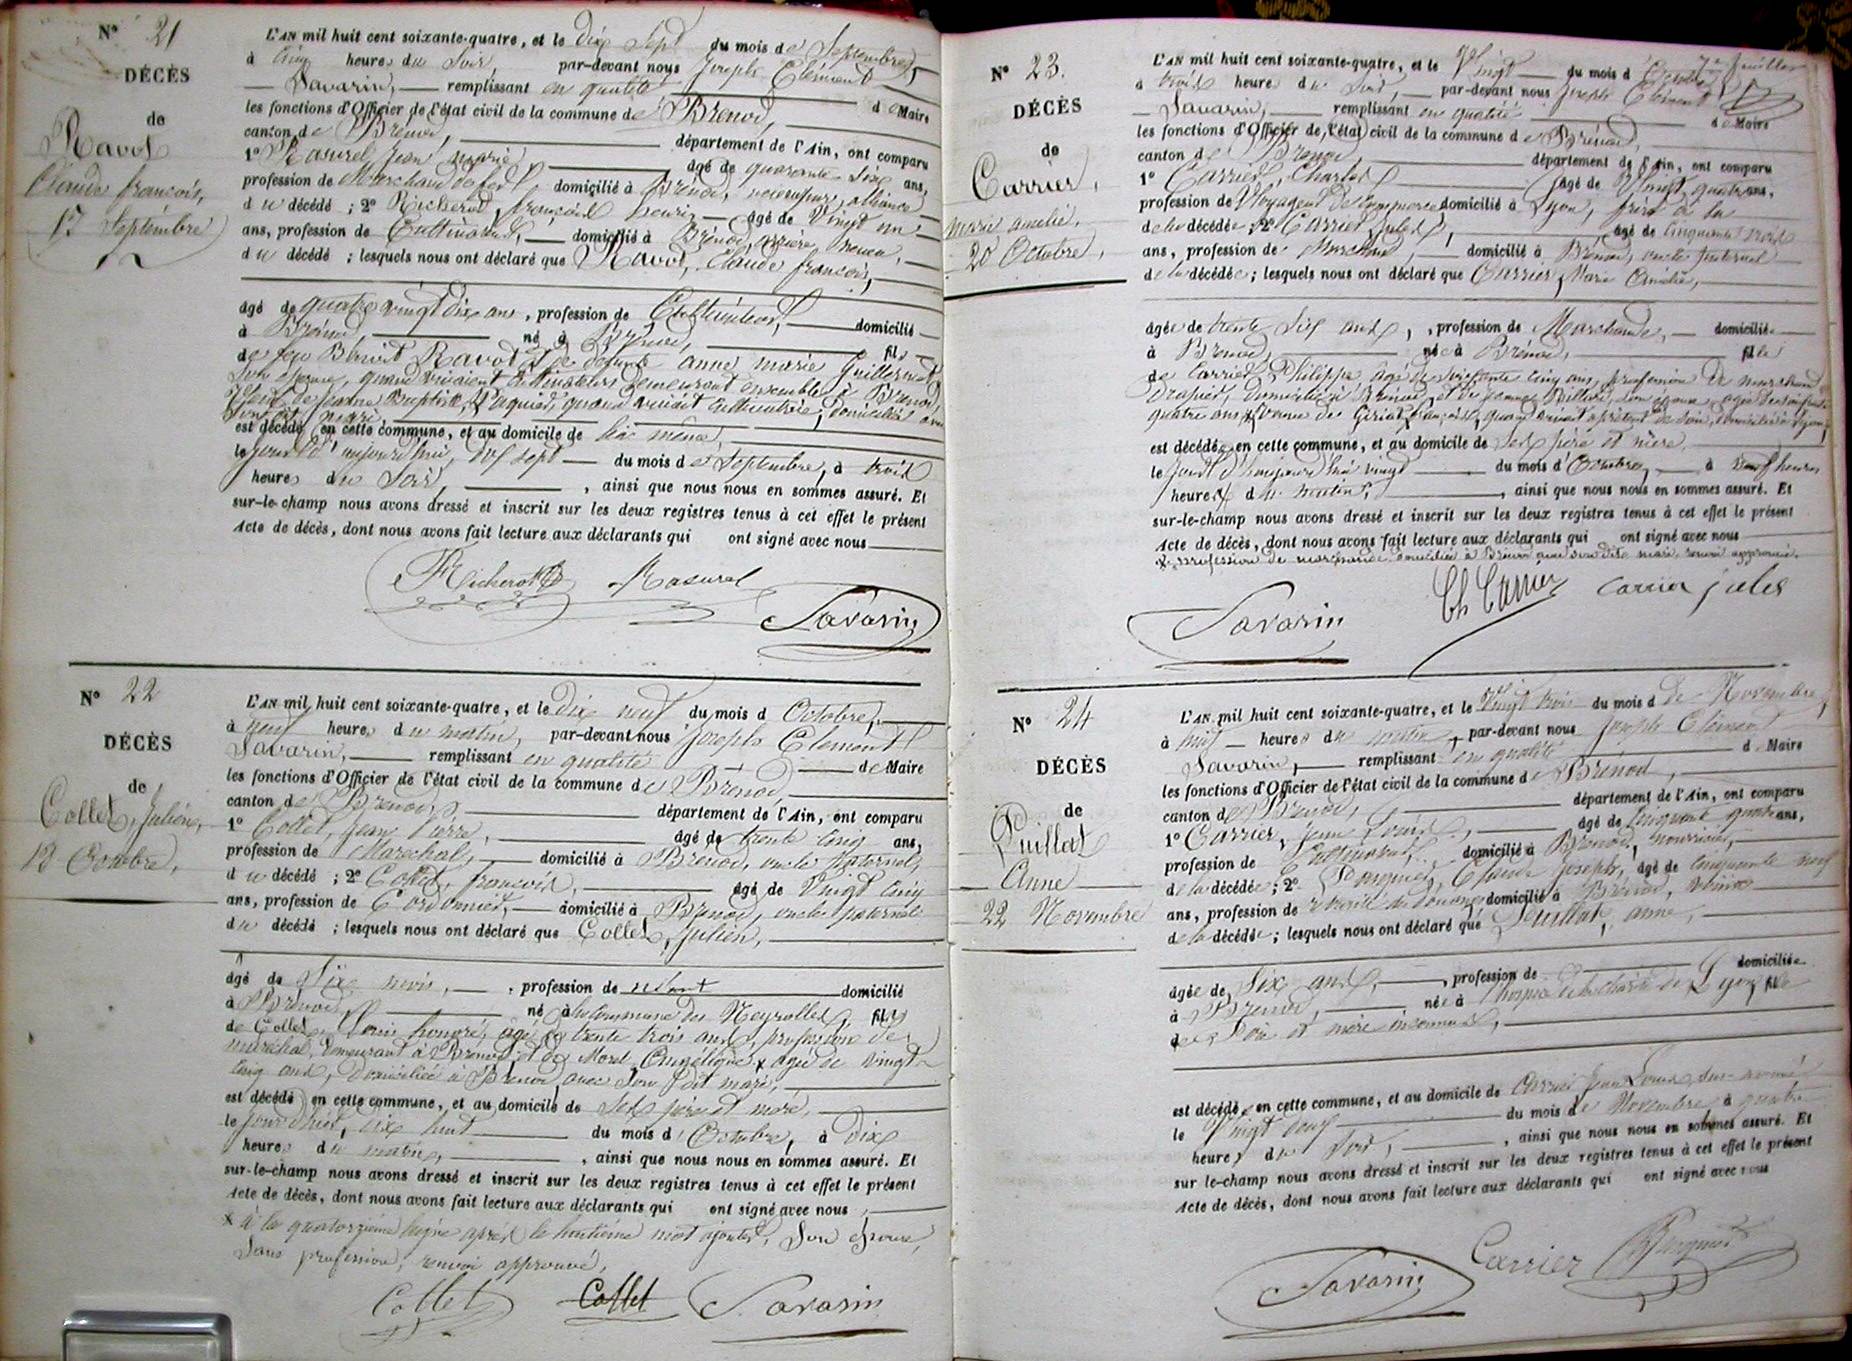 N° 21
DÉCÈS
de
Ravot
Claude françois,
17 Septembre
L'AN mil huit cent soixante-quatre, et le dix Sept du mois de Septembre,
à cinq heures du Soir par-devant nous Joseph Clément
Savarin, remplissant en qualité de Maire
les fonctions d'Officier de l'état civil de la commune de Brenod,
canton de Brenod, département de l'Ain, ont comparu
1° Rasurel Jean marie âgé de quarante six ans,
profession de Marchand de fer, domicilié à Brénod,
du décédé ; 2° Richerot, françois henri âgé de Vingt un
ans, profession de Cultivateur, domicilié à Brénod, arrière neveu,
du décédé ; lesquels nous ont déclaré que Ravot, Claude françois,
âgé de quatre vingt dix ans, profession de Cultivateur, domicilié
à Brénod, né à Brénod, fils
de feu Benoit Ravot et de défunte anne marie Guillermet
Son épouse, quand vivaient Cultivateurs demeurant ensemble à Brenod,
Veuf de Jeanne Baptiste quand vivait Cultivatrice, domiciliée avec
son dit mari
est décédé en cette commune, et au domicile de lui même,
le jour d'aujourd'hui, dix sept du mois de Septembre, à trois
heures du Soir, , ainsi que nous nous en sommes assuré. Et
sur-le-champ nous avons dressé et inscrit sur les deux registres tenus à cet effet le présent
Acte de décès, dont nous avons fait lecture aux déclarants qui ont signé avec nous
Richerot Rasurel
Savarin
N° 22
DÉCÈS
de
Collet, Julien,
18 Octobre,
L'AN mil huit cent soixante-quatre, et le dix neuf du mois d Octobre,
à neuf heures du matin, par-devant nous Joseph Clément
Savarin, remplissant en qualité de Maire
les fonctions d'Officier de l'état civil de la commune de Brenod
canton de Brenod, département de l'Ain, ont comparu
1° Collet, Jean Pierre, âgé de trente cinq ans,
profession de Maréchal, domicilié à Brenod, oncle paternel,
du décédé ; 2° Collet, françois, âgé de Vingt cinq
ans, profession de Cordonnier, domicilié à Brenod, oncle paternel
du décédé ; lesquels nous ont déclaré que Collet, Julien,
âgé de Six mois, profession de néant domicilié
à Brenod, né à la Commune des Neyrolles, fils
de Collet, Louis honoré, âgé de trente trois ans, profession de
maréchal, demeurant à Brenod et de Morel Angélique x âgée de vingt
cinq ans, domiciliée à Brenod avec Son dit mari,
est décédé en cette commune, et au domicile de Ses père et mère,
le jour d'hier, dix huit du mois d'Octobre, à Dix
heures du matin, , ainsi que nous nous en sommes assuré. Et
sur-le-champ nous avons dressé et inscrit sur les deux registres tenus à cet effet le présent
Acte de décès, dont nous avons fait lecture aux déclarants qui ont signé avec nous
x à la quatorzième ligne après le huitième mot ajouter, Son épouse,
Sans profession, renvoi approuvé,
Collet Collet Savarin
N° 23.
DÉCÈS
de
Carrier,
marie amélie,
20 Octobre,
L'AN mil huit cent soixante-quatre, et le Vingt du mois d'Octobre
à trois heures du Soir, par-devant nous Joseph Clément
Savarin, remplissant en qualité de Maire
les fonctions d'Officier de l'état civil de la commune de Brénod,
canton de Brenod, département de l'Ain, ont comparu
1° Carrier, Charles âgé de Vingt quatre ans,
profession de Voyageur de Commerce domicilié à Lyon, frère à la
de la décédée 2° Carrier Jules, âgé de cinquante trois
ans, profession de Marchand, domicilié à Brénod, oncle paternel
de la décédée ; lesquels nous ont déclaré que Carrier, Marie Amélie,
âgée de trente Six ans, , profession de Marchande, domiciliée
à Brenod, née à Brénod, fille
de Carrier, Philippe âgé de soixante cinq ans, profession de marchand
drapier, domicilié à Brénod, et de Jeanne son épouse âgée de soixante
quatre ans x Veuve de françois, quand vivait domicilié à Lyon,
est décédée en cette commune, et au domicile de Ses père et mère
le jour d'aujourd'hui vingt du mois d'Octobre, à neuf heures
heures du matin, , ainsi que nous nous en sommes assuré. Et
sur-le-champ nous avons dressé et inscrit sur les deux registres tenus à cet effet le présent
Acte de décès, dont nous avons fait lecture aux déclarants qui ont signé avec nous
x profession de marchande domiciliée à Brénod avec son dit mari, renvoi approuvé.
Savarin Ch Carrier Carrier jules
N° 24
DÉCÈS
de
Puillat
Anne
22 Novembre
L'AN mil huit cent soixante-quatre, et le Vingt trois du mois d de Novembre,
à huit heures du matin, par-devant nous Joseph Clément
Savarin, remplissant en qualité de Maire
les fonctions d'Officier de l'état civil de la commune de Brenod,
canton de Brenod, département de l'Ain, ont comparu
1° Carrier, Jean Louis, âgé de Cinquante quatre ans,
profession de Cultivateur, domicilié à Brénod, nourricier,
de la décédée ; 2° Claude Joseph, âgé de cinquante neuf
ans, profession de retraité des douanes domicilié à Brénod, voisin
de la décédée ; lesquels nous ont déclaré que Puillat, anne,
âgée de Six ans, , profession de domiciliée
à Brenod, née à l'hospice de la charité de Lyon, fille
de Père et mère inconnus,
est décédée en cette commune, et au domicile de Carrier Jean Louis, sus-nommé
le Vingt deux du mois de Novembre à quatre
heures du Soir, , ainsi que nous nous en sommes assuré. Et
sur le-champ nous avons dressé et inscrit sur les deux registres tenus à cet effet le présent
Acte de décès, dont nous avons fait lecture aux déclarants qui ont signé avec nous
Savarin Carrier